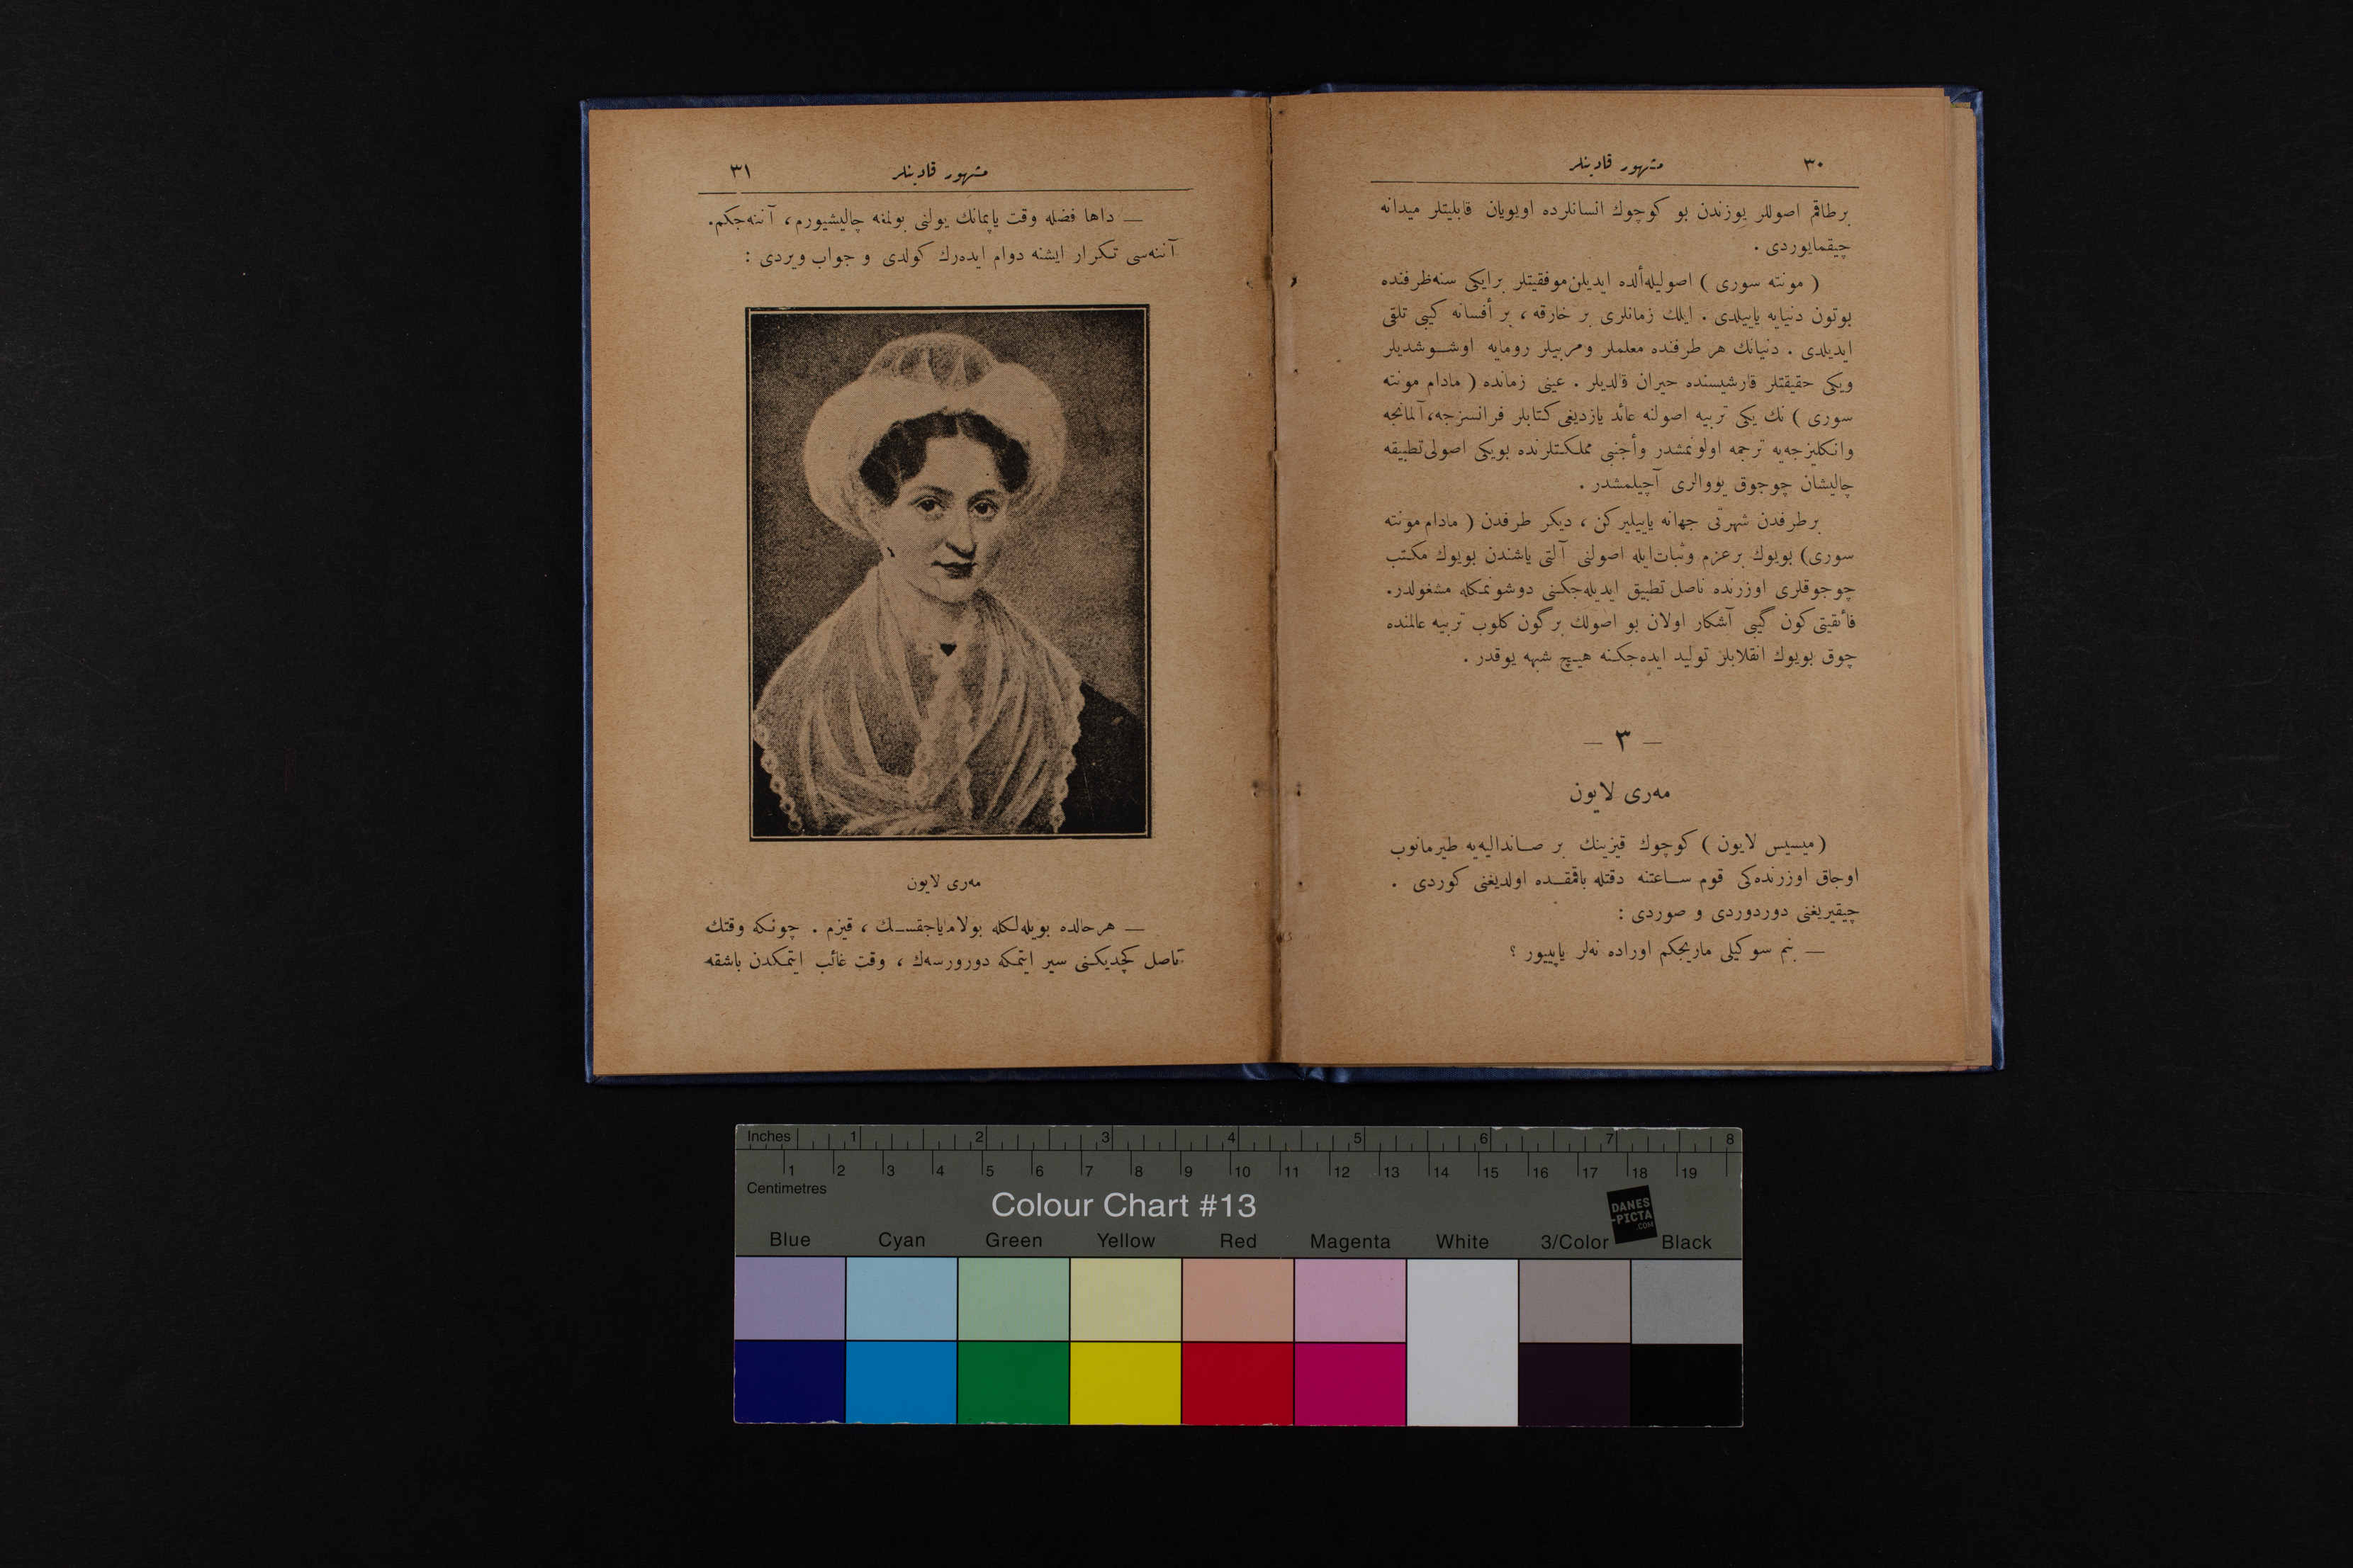 ٣٠ مشهور قادينلر
برطاقم اصوللر يوزندن بو كوچوك انسانلرده اويويان قابليتلر ميدانه
چيقمايوردى .
( مونته سورى ) اصوليله ألده ايديلن موفقيتلر برايكى سنه ظرفنده
بوتون دنيايه ياييلدى . ايلك زمانلرى بر خارقه ، بر أفسانه كيبى تلقى
ايديلدى . دنيانك هر طرفنده معلملر ومربيلر رومايه اوشوشديلر
ويكى حقيقتلر قارشيسنده حيران قالديلر . عينى زمانده ( مادام مونته
سورى ) نك يكى تربيه اصولنه عائد يازديغى كتابلر فرانسزجه، آلمانجه
وانكليزجه‌يه ترجمه اولونمشدر وأجنبى مملكتلرنده بويكى اصولى تطبيقه
چاليشان چوجوق يووالرى آچيلمشدر .
برطرفدن شهرتى جهانه ياييليركن ، ديكر طرفدن ( مادام مونته
سورى) بويوك برعزم وثبات ايله اصولنى آلتى ياشندن بويوك مكتب
چوجوقلرى اوزرنده ناصل تطبيق ايديله‌جكنى دوشونمكله مشغولدر.
فائقيتى كون گيبى آشكار اولان بو اصولك برگون كلوب تربيه عالمنده
چوق بويوك انقلابلر توليد ايده‌جكنه هيچ شبهه يوقدر .
— ٣ —
مه‌رى لايون
(ميسيس لايون ) كوچوك قيزينك بر صانداليه‌يه طيرمانوب
اوجاق اوزرنده‌كى قوم ساعتنه دقتله باقمقده اولديغنى كوردى .
چيقيريغنى دوردوردى و صوردى :
— بنم سوكيلى ماريجكم اوراده نه‌لر ياپييور ؟
مشهور قادينلر ٣١
— داها فضله وقت ياپمانك يولنى بولمغه چاليشيورم، آننه‌جكم.
آننه‌سى تكرار ايشنه دوام ايده‌رك كولدى و جواب ويردى :
مه‌رى لايون
— هرحالده بويله‌لكله بولاماياجقسك ، قيزم . چونكه وقتك
ناصل كچديكنى سير ايتمكه دورورسه‌ك ، وقت غائب ايتمكدن باشقه
Inches 1 2 3 4 5 6 7 8
1 2 3 4 5 6 7 8 9 10 11 12 13 14 15 16 17 18 19
Centimetres
Colour Chart #13
DANES
-PICTA
.COM
Blue Cyan Green Yellow Red Magenta White 3/Color Black